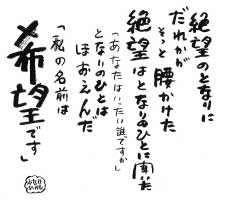 絶望のとなりに
だれかが
そっと腰かけた
絶望はとなりのひとに聞いた
「あなたはいったい誰ですか」
となりのひとは
ほおえんだ
「私の名前は
希望です」